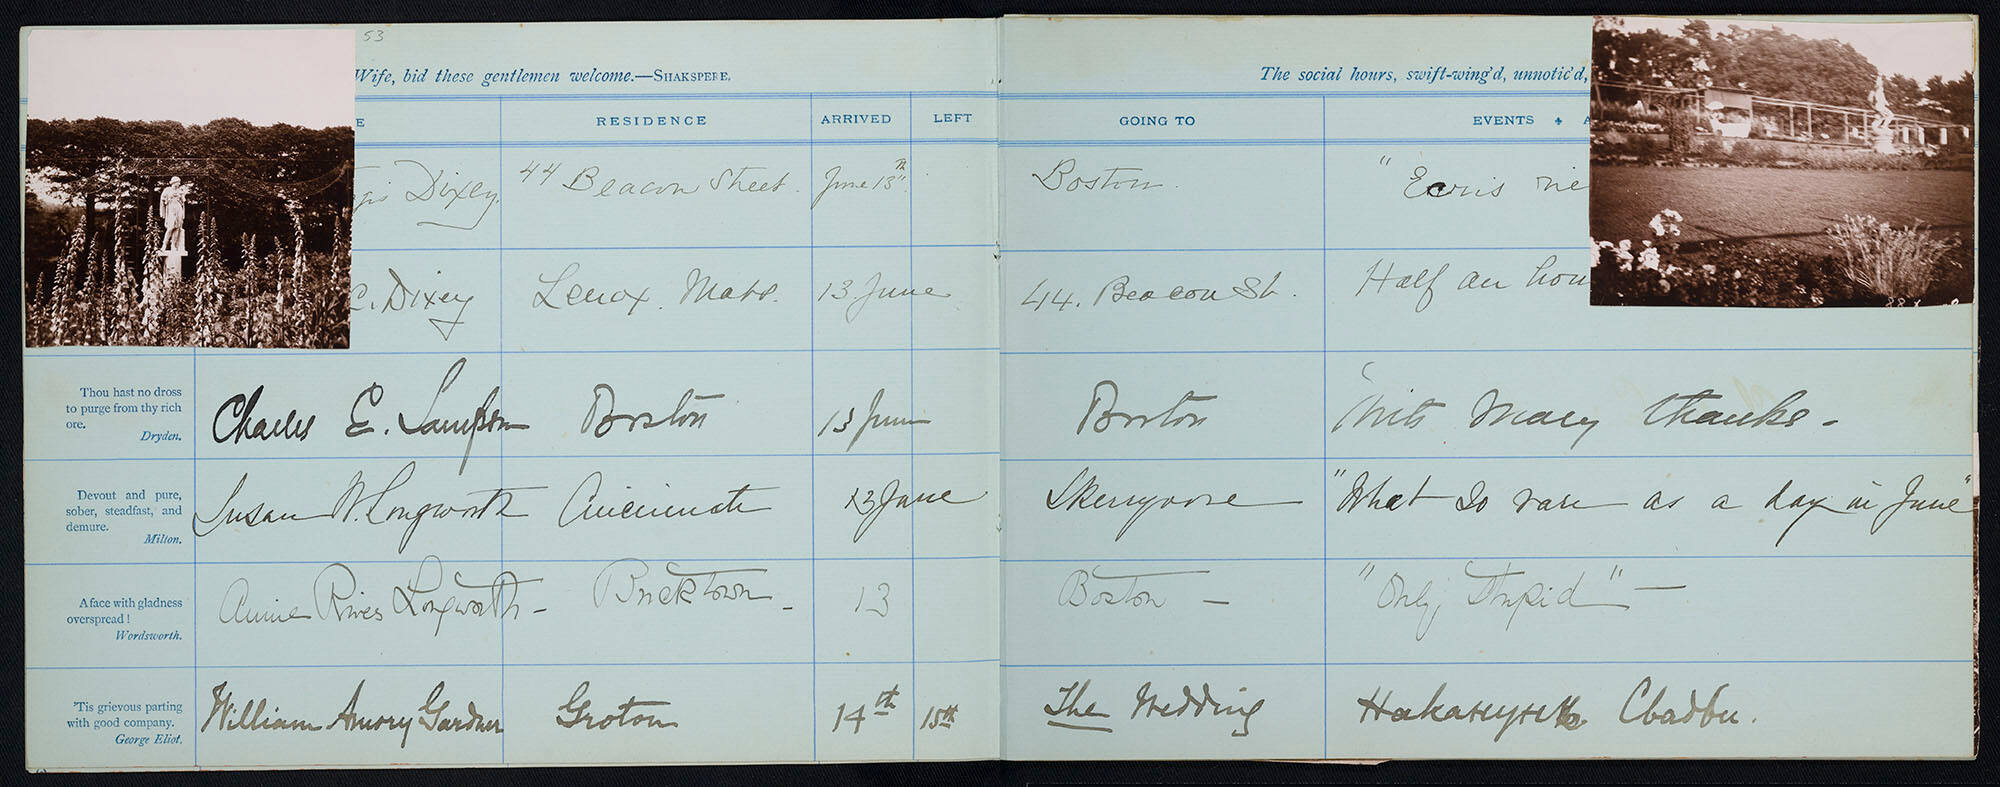 53
Wife, bid these gentlemen welcome.—SHAKSPERE.
The social hours, swift-wing'd, unnotic'd,
E RESIDENCE ARRIVED LEFT GOING TO EVENTS
Dixey. 44 Beacon Street. June 13th. Boston. "
C. Dixey Lenox. Mass. 13 June 44. Beacon St. Half an hou
Thou hast no dross
to purge from thy rich
ore.
Dryden.
Charles E. Sampson Boston 13 June Boston With Many thanks -
Devout and pure,
sober, steadfast, and
demure.
Milton.
Susan W. Longworth Cincinnati 13 June Skerryvore "What so rare as a day in June"
A face with gladness
overspread!
Wordsworth.
Annie Rives Longworth - Bricktown - 13 Boston - "Only Stupid" -
'Tis grievous parting
with good company.
George Eliot.
William Amory Gardner Groton 14th 15th The Wedding